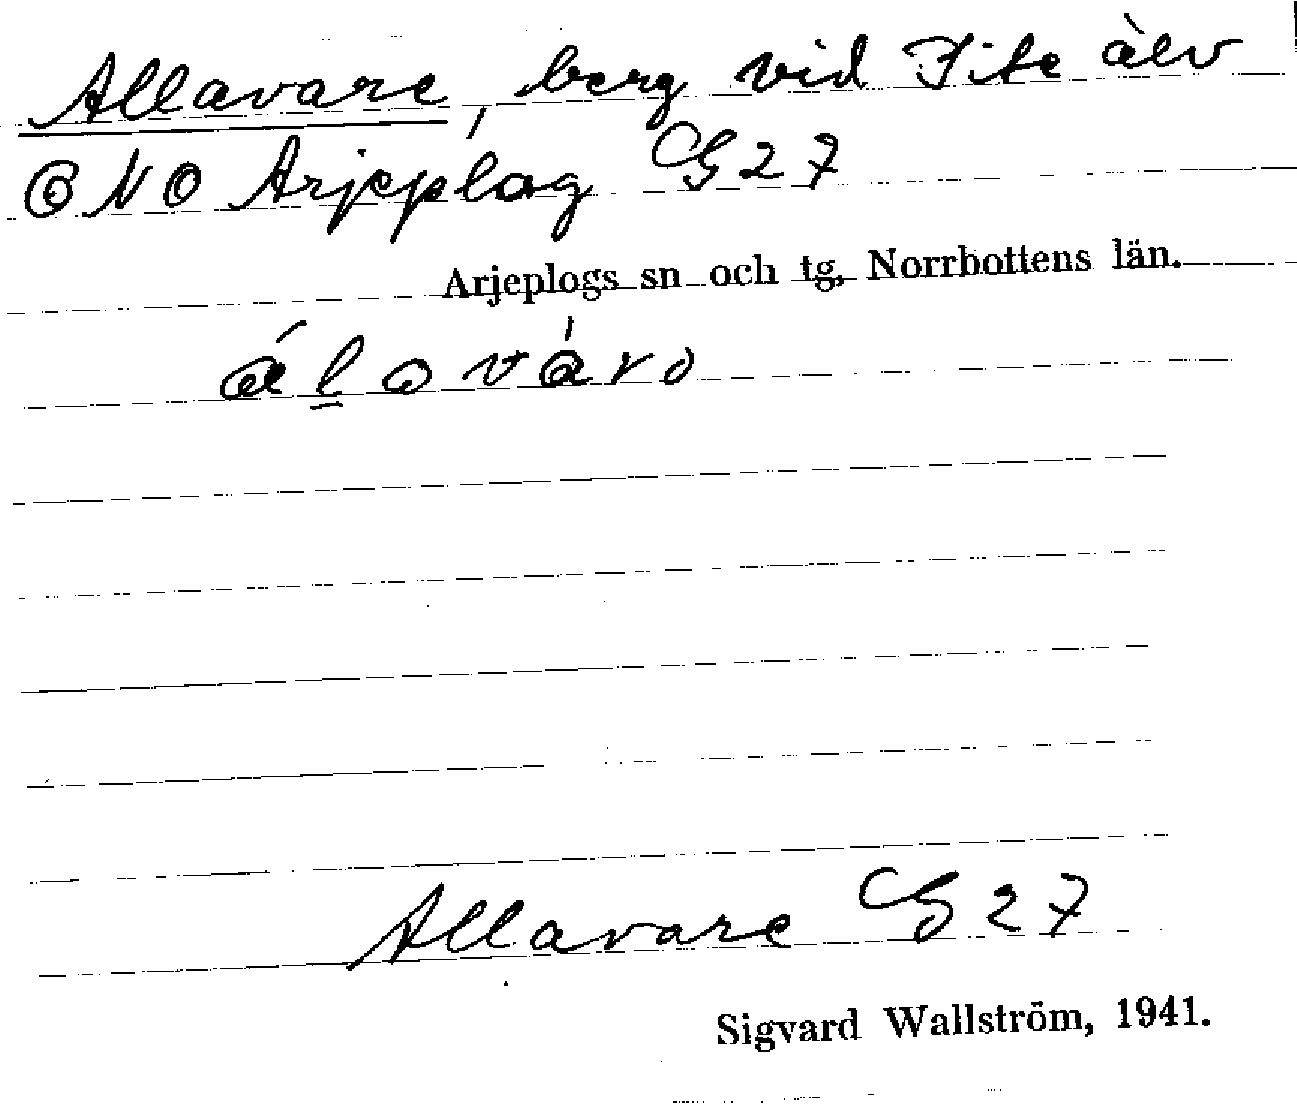 Allavare, berg vid Pite älv
O N O Arjeplog G 27
Arjeplogs sn och tg, Norrbottens län.
álovárо
Allavare G 27
Sigvard Wallström, 1941.